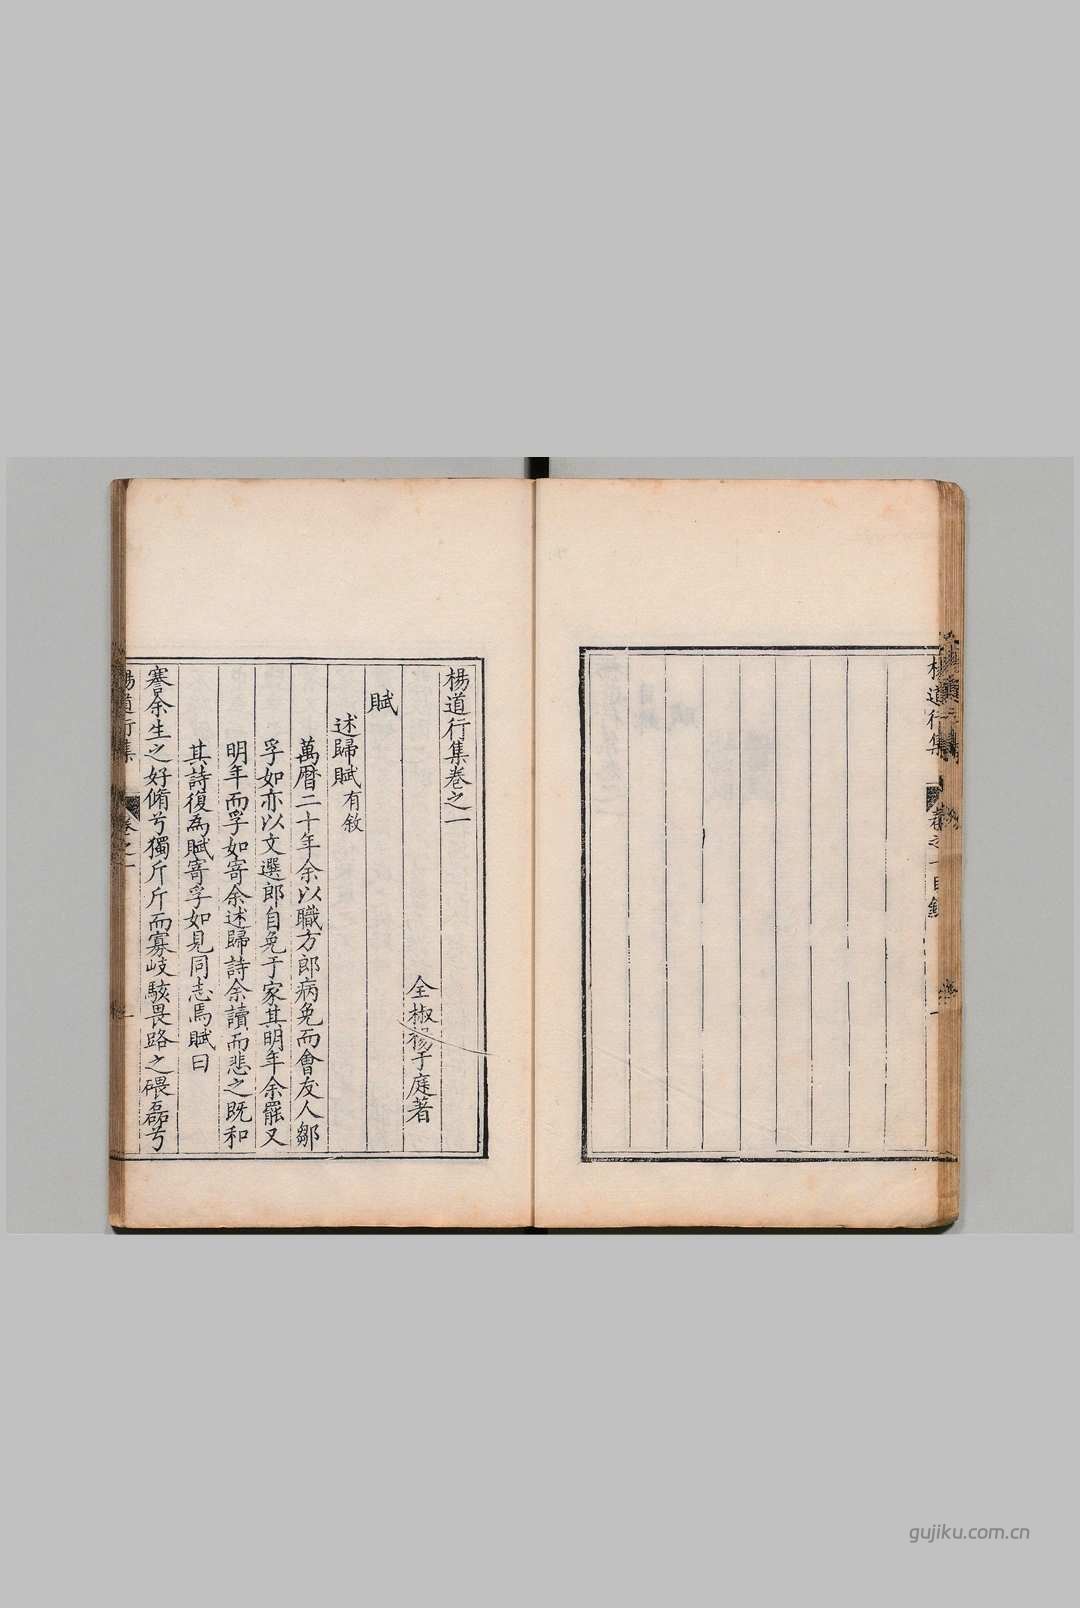 楊道行集
卷之一目錄
楊道行集卷之一
全椒楊于庭著
賦
述歸賦有敘
萬曆二十年余以職方郎病免而會友人鄒
孚如亦以文選郎自免于家其明年余罷又
明年而孚如寄余述歸詩余讀而悲之既和
其詩復為賦寄孚如見同志焉賦曰
謇余生之好脩兮獨斤斤而寡岐駭畏路之碨磊兮
楊道行集
卷之一
一
gujiku.com.cn